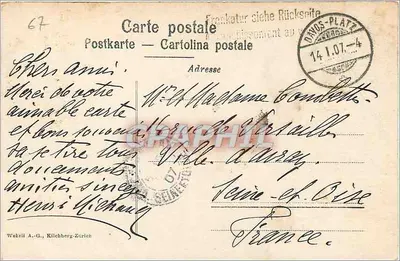 67
Carte postale
Postkarte — Cartolina postale
Frankatur siehe Rückseite
DAVOS-PLATZ
14.I.07.-4
Adresse
Chers amis.
Merci de votre
aimable carte
et bons souvenirs
tous
doucement
amitiés sincères
Henri
Mr et Madame
rue de Versailles
Ville d'Avray
Seine et Oise
France
07
SEINE-ET-O
Wehrli A.-G., Kilchberg-Zürich